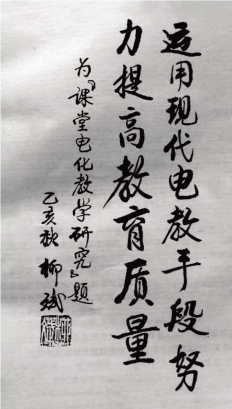 运用现代电教手段努
力提高教育质量
为《课堂电化教学研究》题
乙亥秋 柳斌